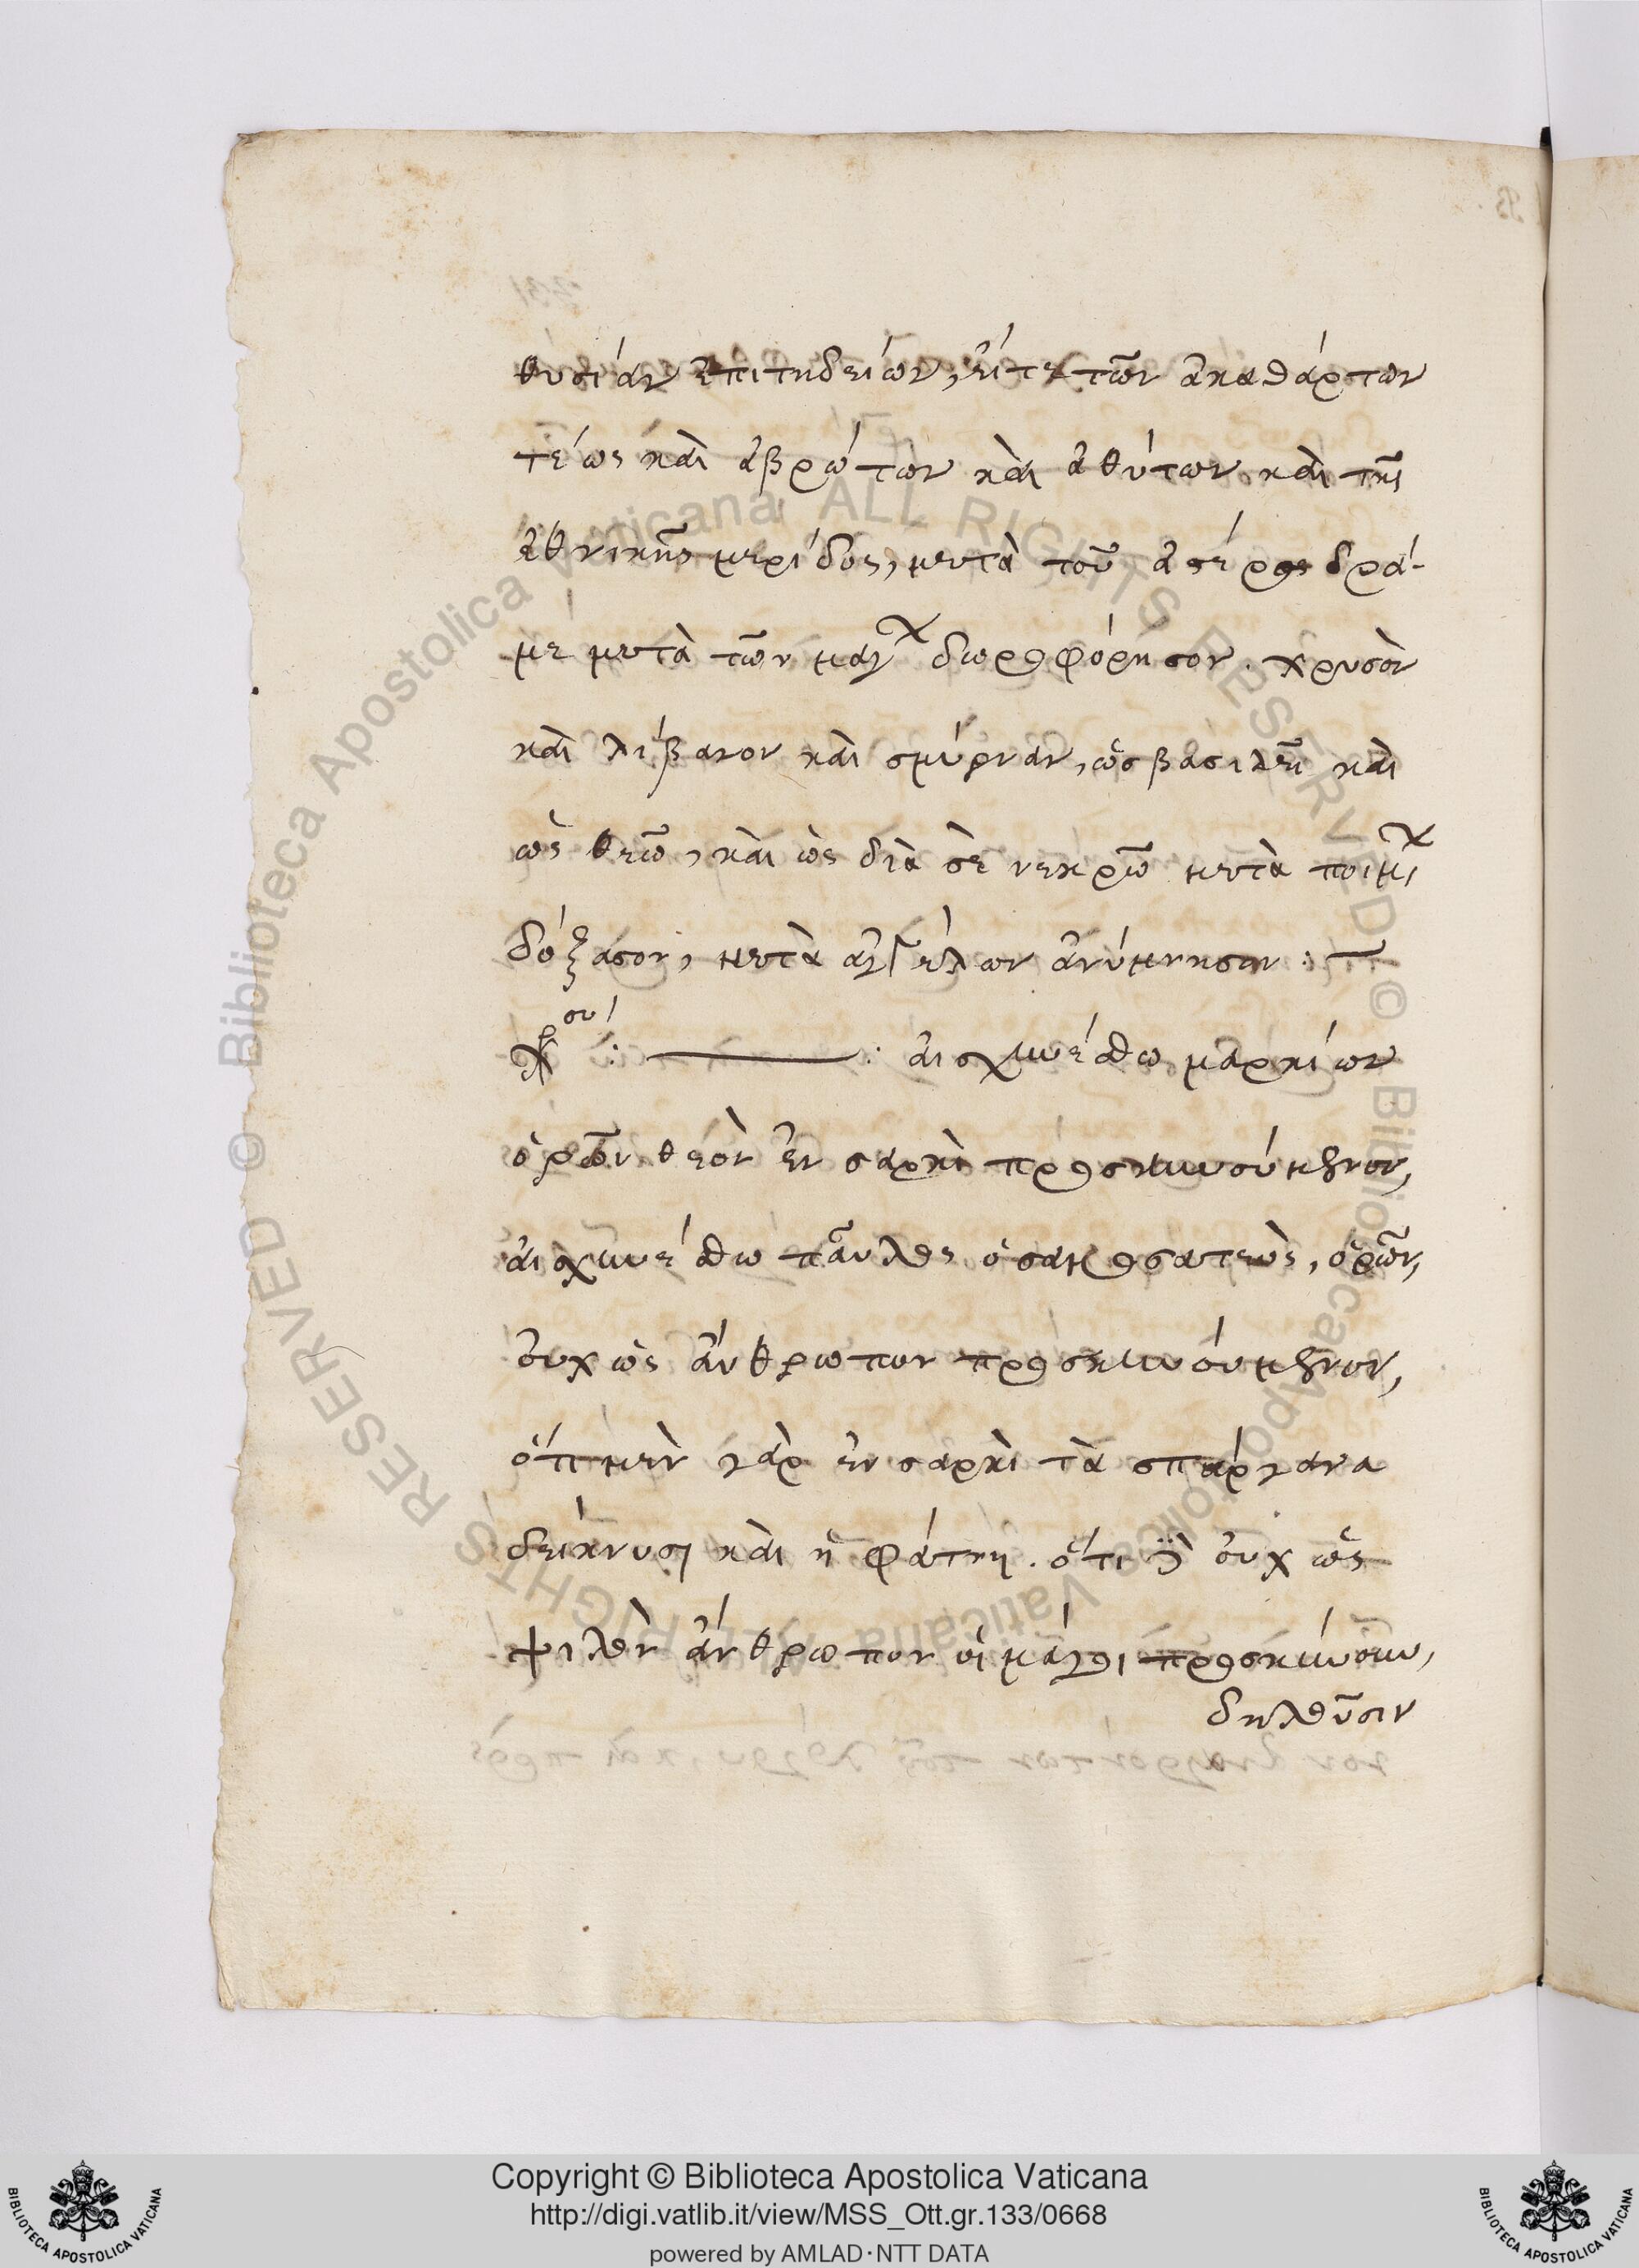 θυσίαν ἐπιτηδείων, εἴτε τῶν ἀκαθάρτων
τέως καὶ ἀβρώτων καὶ ἀθύτων καὶ τῆς
ἐθνικῆς μερίδος, μετὰ τοῦ ἀστέρος δρά-
με μετὰ τῶν μαγ δωροφόρησον. χρυσὸν
καὶ λίβανον καὶ σμύρναν, ὡς βασιλεῖ καὶ
ὡς θεῶ, καὶ ὡς διὰ σὲ νεκρῶ μετὰ ποιμ
δόξασον, μετὰ ἀγγέλων ἀνύμνησον :
: αἰσχυνέσθω μαρκίων
ὁρῶν θεὸν ἐν σαρκὶ προσκυνούμενον,
αἰσχυνέσθω παῦλος ὁ σαμοσατεὺς, ὁρῶν,
οὐχ ὡς ἄνθρωπον προσκυνούμενον,
ὅτι μὲν γὰρ ἐν σαρκὶ τὰ σπάργανα
δείκνυσι καὶ ἡ φάτνη. ὅτι δὲ οὐχ ὡς
ψιλὸν ἄνθρωπον οἱ μάγοι προσκυνοῦσιν,
δηλοῦσιν
Copyright © Biblioteca Apostolica Vaticana
http://digi.vatlib.it/view/MSS_Ott.gr.133/0668
powered by AMLAD·NTT DATA
BIBLIOTECA APOSTOLICA VATICANA
BIBLIOTECA APOSTOLICA VATICANA